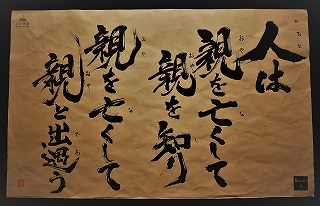 人は
親を亡くして
親を知り
親を亡くして
親と出遇う